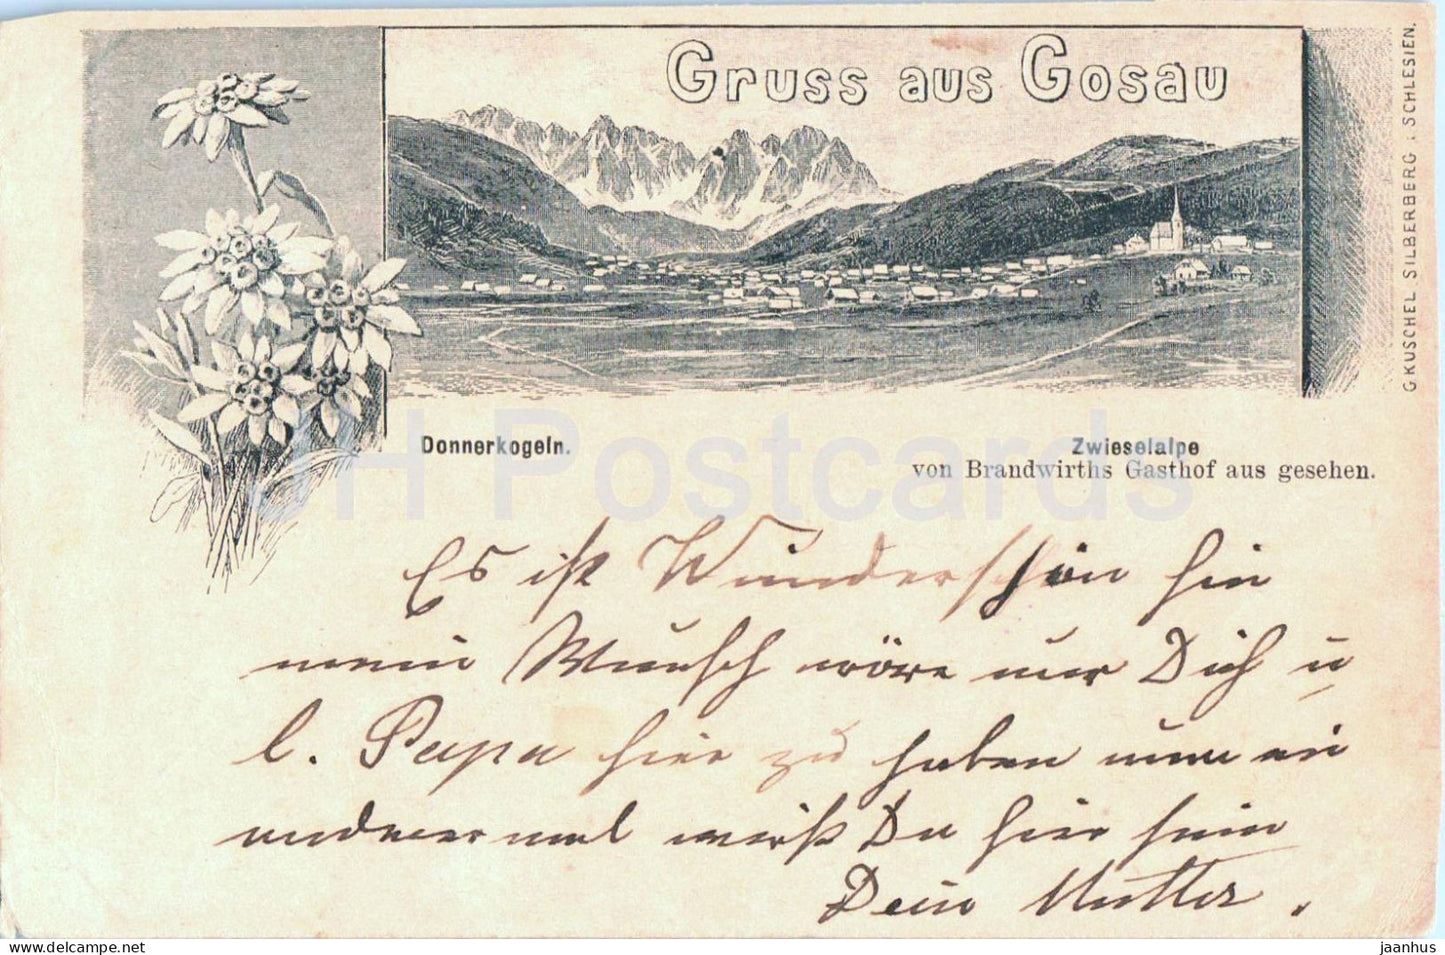 Gruss aus Gosau
G KUSCHEL SILBERBERG i. SCHLESIEN.
Donnerkogeln.
Zwieselalpe
von Brandwirths Gasthof aus gesehen.
JH Postcards
Es ist Wunderschön hier
mein Wunsch wäre nur Dich u
l. Papa hier zu haben nun ein
andermal mußt Du hier sein
Dein Mutter.
delcampe.net
jaanhus